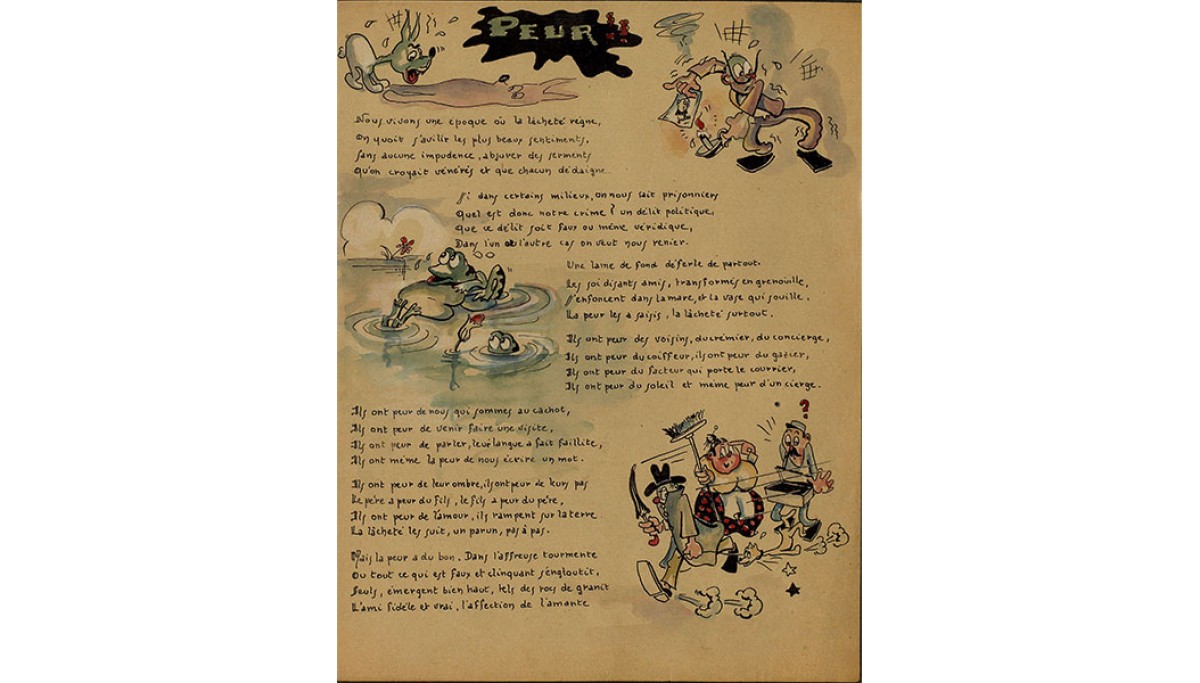 PEUR!!
Nous vivons une époque où la lâcheté règne,
On quoit s'avilir les plus beaux sentiments,
Sans aucune impudence, abjurer des serments
Qu'on croyait vénérés et que chacun dédaigne.
Si dans certains milieux, on nous sait prisonniers
Quel est donc notre crime? un délit politique,
Que ce délit soit faux ou même véridique,
Dans l'un ou l'autre cas on veut nous renier.
Une lame de fond déferle de partout.
Les soi disants amis, transformés en grenouille,
S'enfoncent dans la mare, et la vase qui souille.
La peur les a saisis, la lâcheté surtout.
Ils ont peur des voisins, du crémier, du concierge,
Ils ont peur du coiffeur, ils ont peur du gazier,
Ils ont peur du facteur qui porte le courrier,
Ils ont peur du soleil et même peur d'un cierge.
Ils ont peur de nous qui sommes au cachot,
Ils ont peur de venir faire une visite,
Ils ont peur de parler, langue a fait faillite,
Ils ont même la peur de nous écrire un mot.
Ils ont peur de leur ombre, ils ont peur de leurs pas
Le père a peur du fils, le fils a peur du père,
Ils ont peur de l'amour, ils rampent sur la terre
La lâcheté les suit, un par un, pas à pas.
Mais la peur a du bon. Dans l'affreuse tourmente
Ou tout ce qui est faux et clinquant s'engloutit,
Seuls, émergent bien haut, tels des rocs de granit
L'ami fidèle et vrai, l'affection de l'amante
?